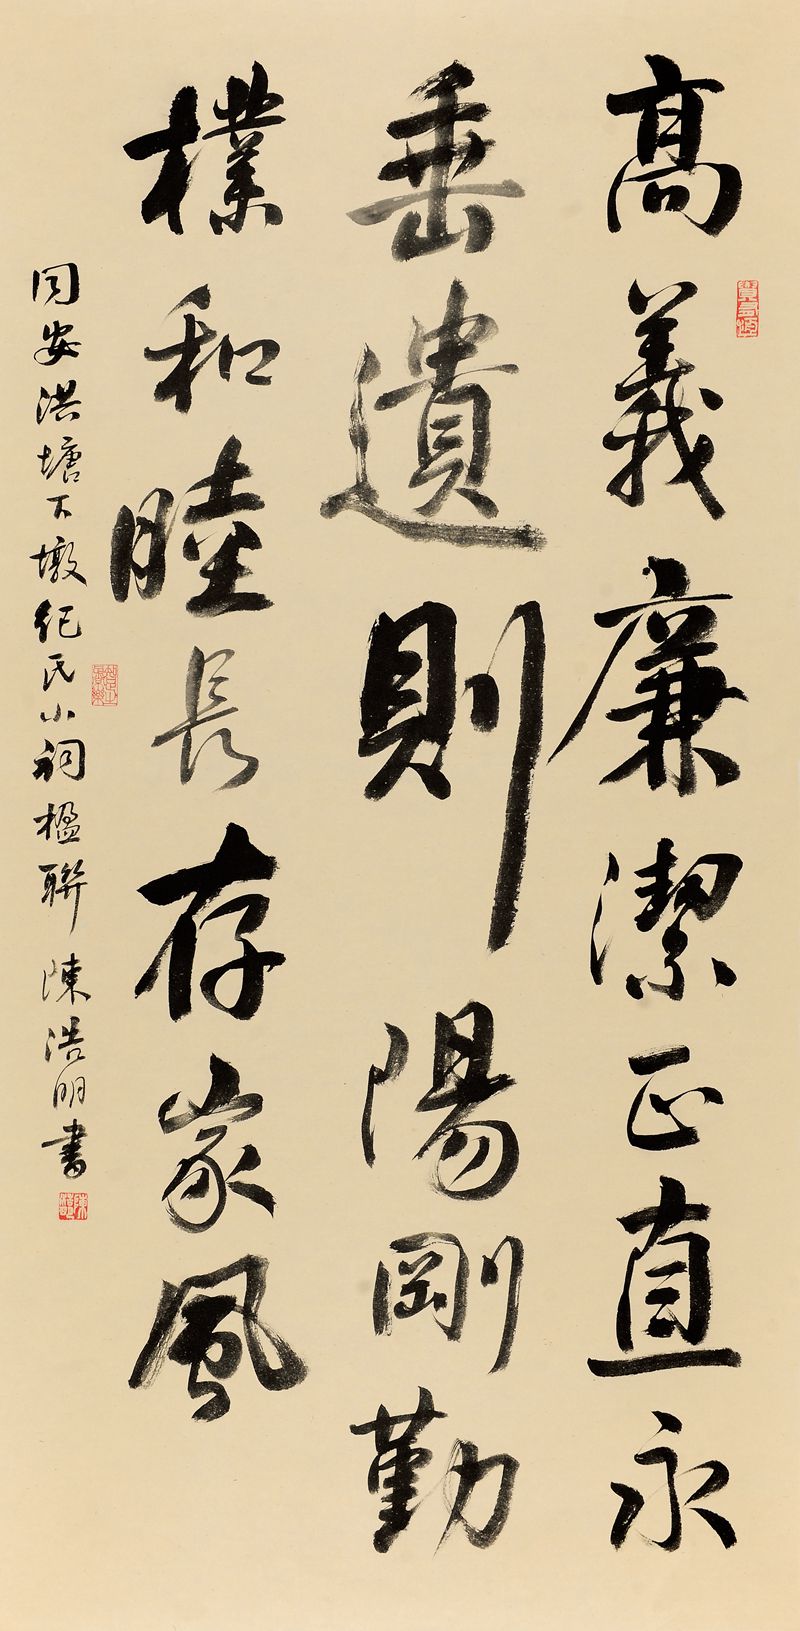 高義廉潔正直永
垂遺則陽剛勤
樸和睦長存家風
同安洪塘下墩紀氏小祠楹聯 陳浩明書